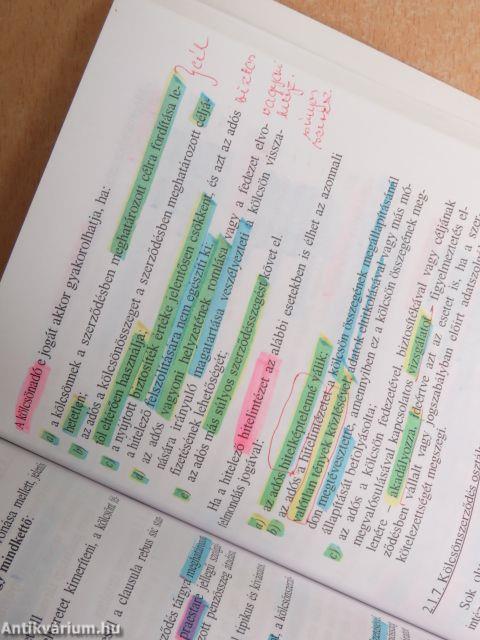 A kölcsönadó e jogát akkor gyakorolhatja, ha:
a) a kölcsönnek a szerződésben meghatározott célra fordítása le-
hetetlen;
b) az adós a kölcsönösszeget a szerződésben meghatározott céljá-
tól eltérően használja;
c) a nyújtott biztosíték értéke jelentősen csökkent, és azt az adós
a hitelező felszólítására nem egészíti ki;
d) az adós vagyoni helyzetének romlása vagy a fedezet elvo-
nására irányuló magatartása veszélyezteti a kölcsön vissza-
fizetésének lehetőségét.
e) az adós más súlyos szerződésszegést követ el.
Ha a hitelező hitelintézet az alábbi esetekben is élhet az azonnali
felmondás jogával:
a) az adós hitelképtelenné válik;
b) az adós a hitelintézetet a kölcsön összegének megállapításánál
valótlan tények közlésével, adatok eltitkolásával vagy más mó-
don megtévesztette, amennyiben ez a kölcsön összegének meg-
állapítását befolyásolta;
c) az adós a kölcsön fedezetével, biztosítékával vagy céljának
megvalósulásával kapcsolatos vizsgálatot – figyelmeztetés el-
lenére – akadályozza. Ideértve azt az esetet is, ha a szer-
ződésben vállalt vagy jogszabályban előírt adatszol-
kötelezettségét megszegi.
2.1.7. Kölcsönszerződés
Sok
cél
vonása mellett,
mindkettő:
kimeríteni, a kölcsön
a clausula rebus sic
tárgya meghatározott
praestare
pénzösszeg
a kölcsönszerz
Antikvárium.hu
Antikvárium.hu